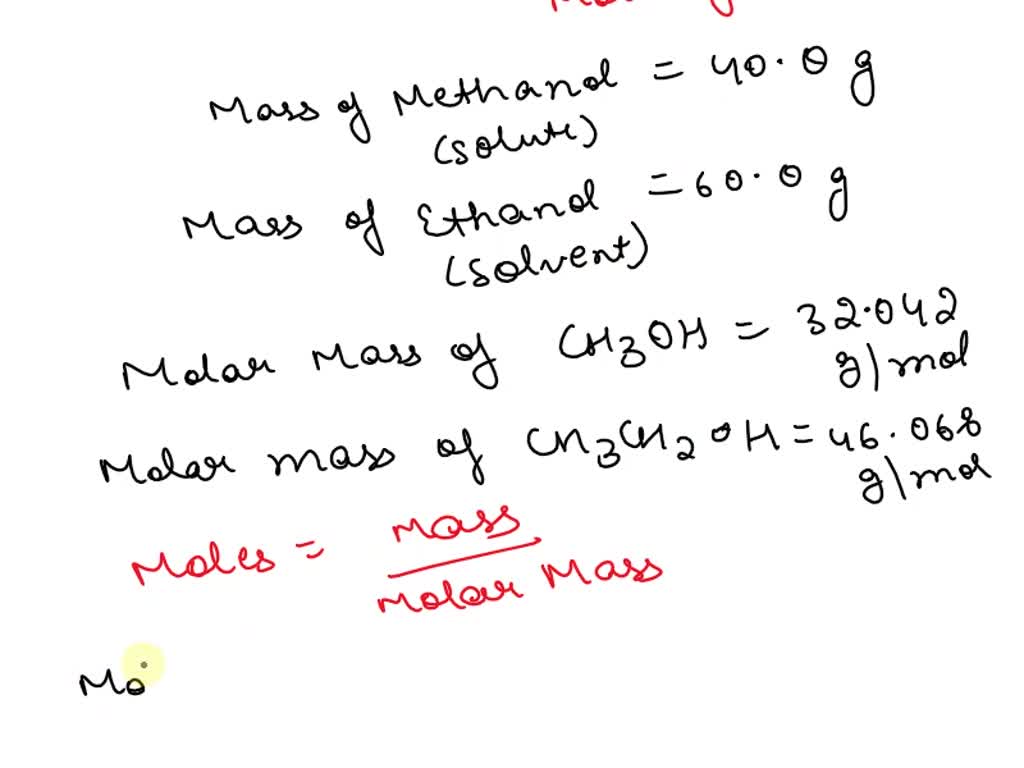 Mass of Methanol = 40.0 g
(solute)
Mass of Ethanol = 60.0 g
(solvent)
Molar Mass of CH3OH = 32.042
g/mol
Molar mass of CH3CH2OH = 46.068
g/mol
Moles = Mass
Molar Mass
Mo